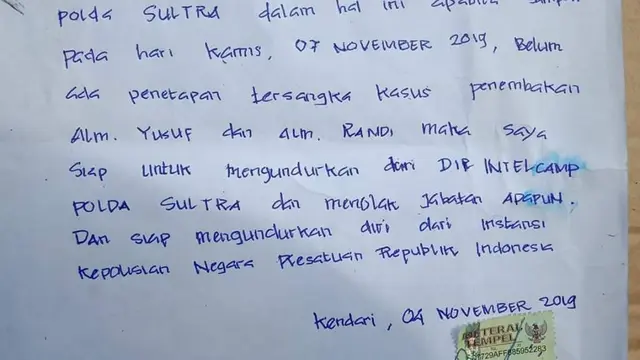 POLDA SULTRA dalam hal ini apabila sampai
pada hari kamis, 07 NOVEMBER 2019, Belum
ada penetapan tersangka kasus penembakan
Alm. YUSUF dan Alm. RANDI maka saya
siap untuk mengundurkan dari DIR INTELCAMP
POLDA SULTRA dan menolak Jabatan APAPUN.
DAN siap mengundurkan diri dari instansi
Kepolisian Negara Presatuan Republik Indonesia
Kendari, 04 NOVEMBER 2019
METERAI
TEMPEL